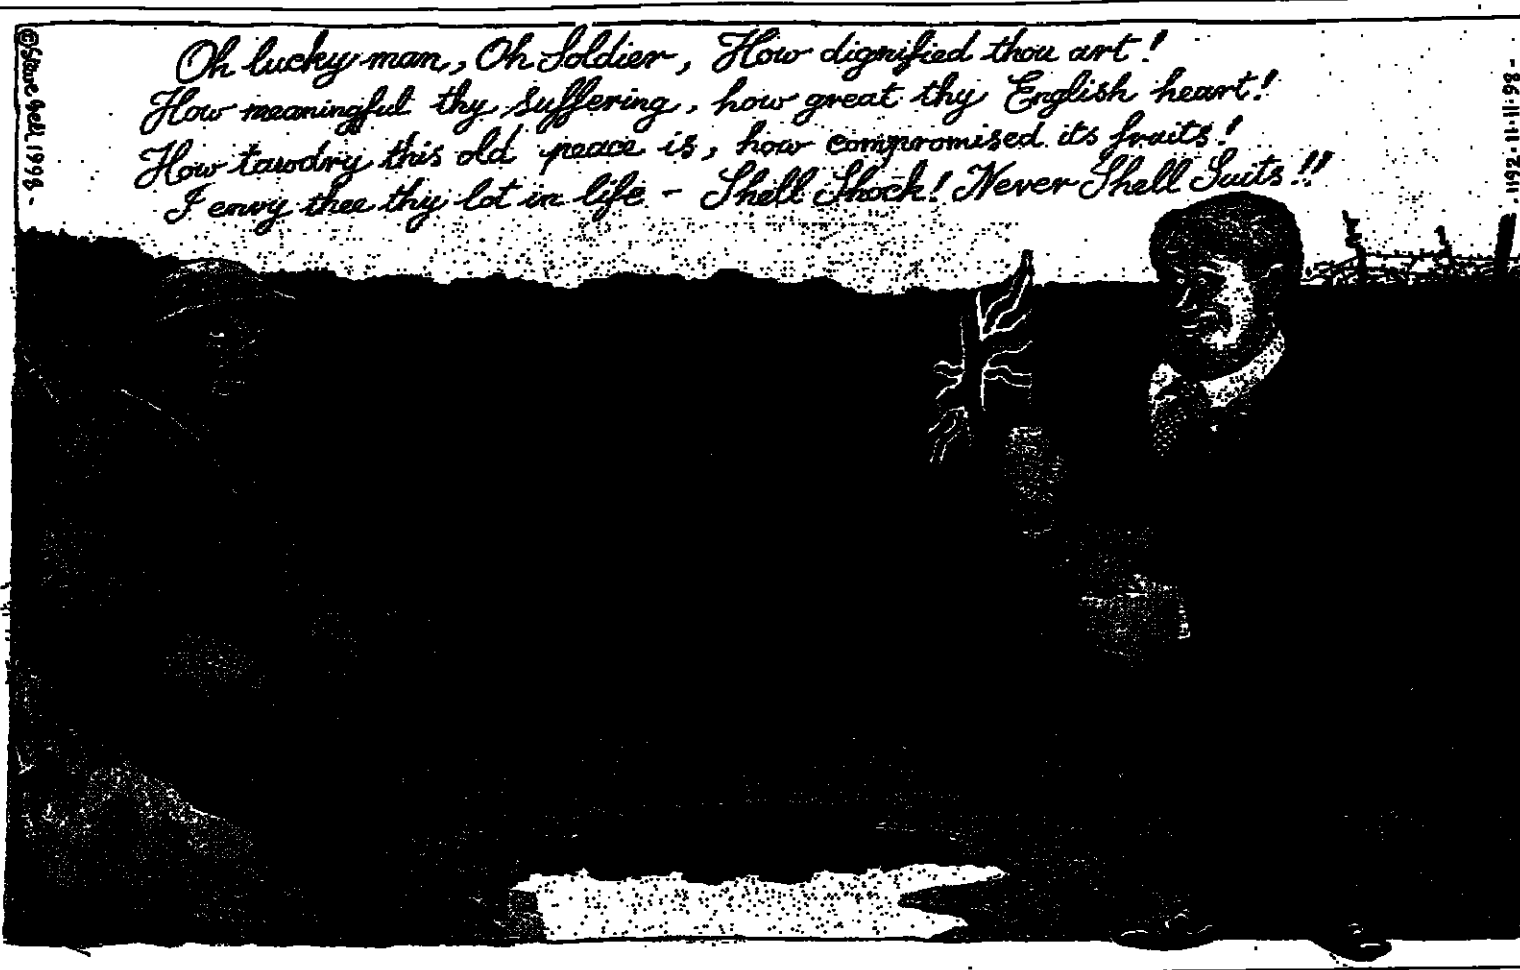 Oh lucky man, Oh Soldier, How dignified thou art!
How meaningful thy suffering, how great thy English heart!
How tawdry this old peace is, how compromised its fruits!
I envy thee thy lot in life - Shell Shock! Never Shell Suits!!
©Steve Bell 1998 -
. 1192 · 11 · 11 · 98 -